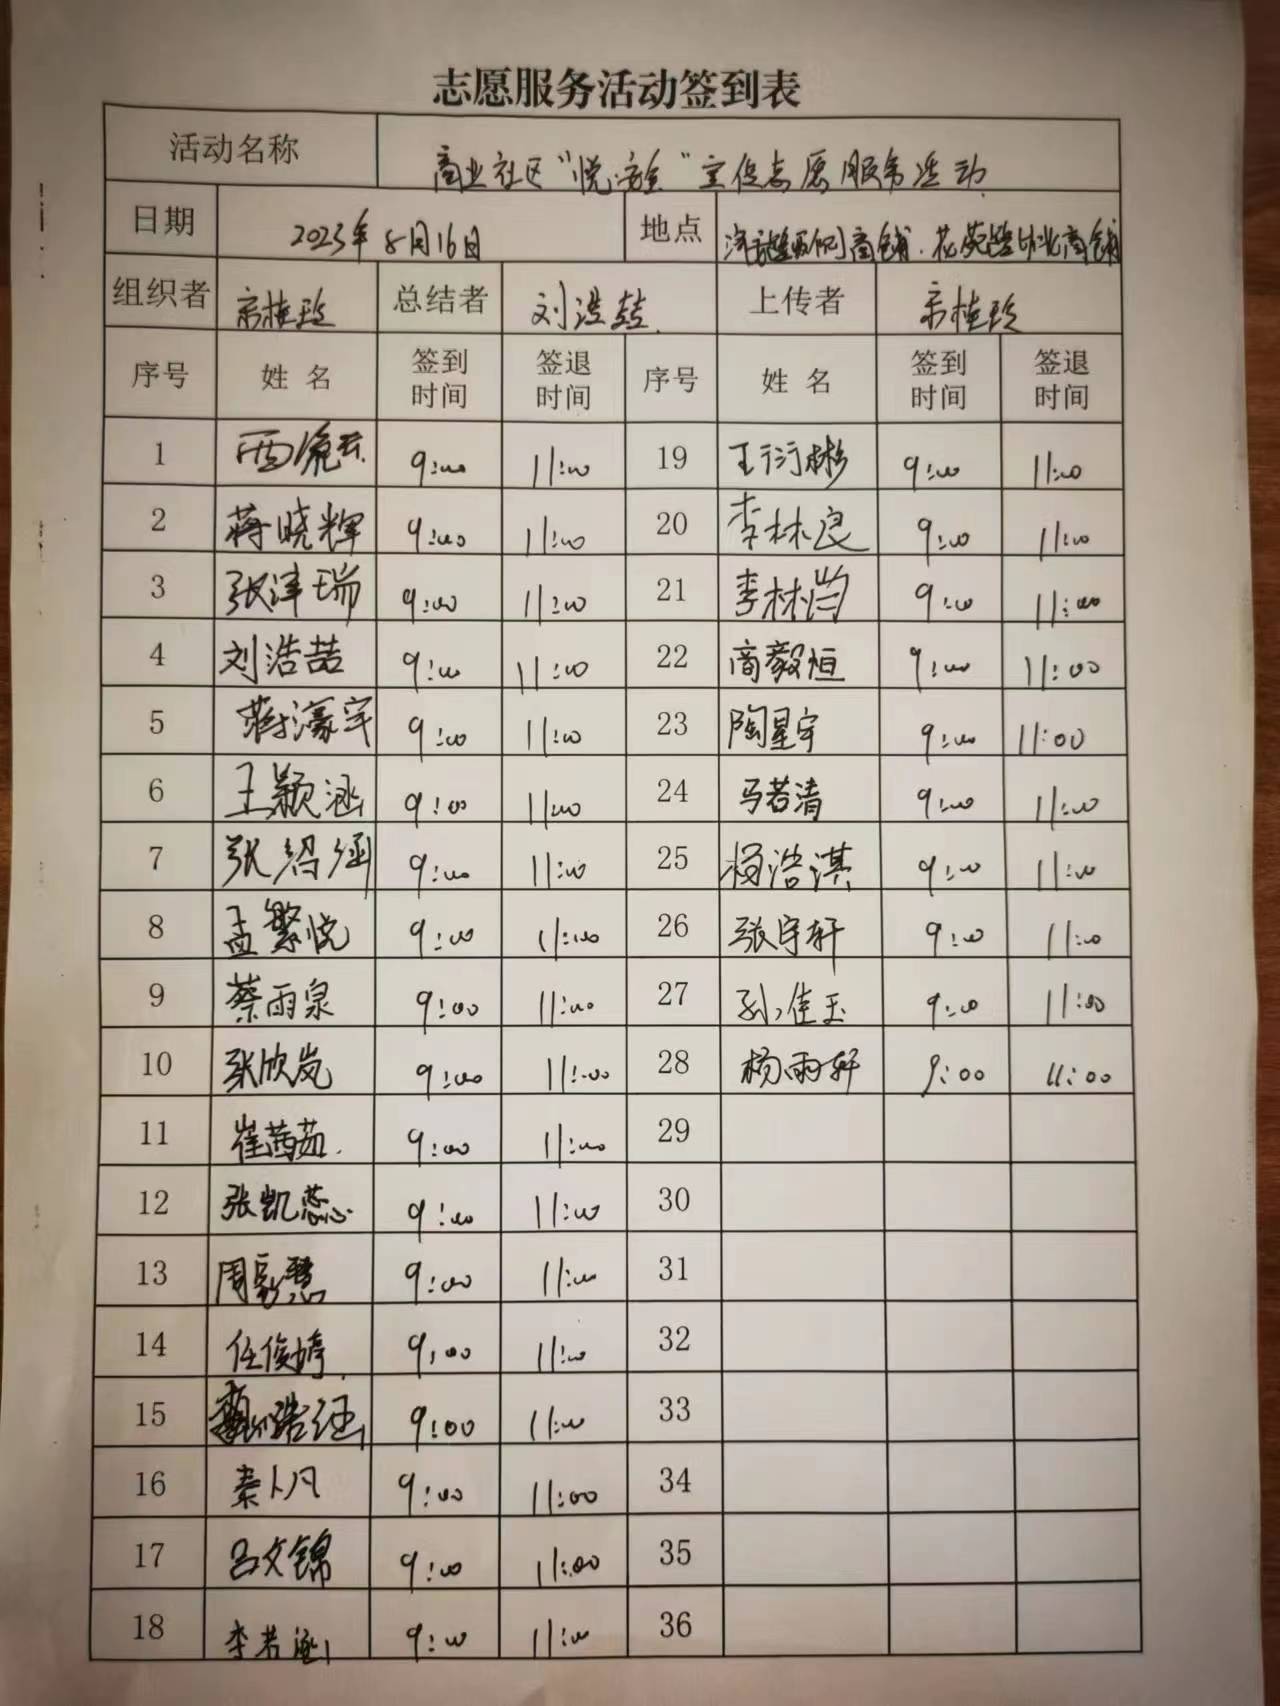 志愿服务活动签到表
活动名称 商业社区"悦安全"宣传志愿服务活动
日期 2023年8月16日 地点 商铺.花苑路北商铺
组织者 宗桂玲 总结者 刘浩喆 上传者 宗桂玲
序号 姓名 签到时间 签退时间 序号 姓名 签到时间 签退时间
1 9:00 11:00 19 王衍彬 9:00 11:00
2 蒋晓辉 9:00 11:00 20 李林良 9:00 11:00
3 张津瑞 9:00 11:00 21 李林 9:00 11:00
4 刘浩喆 9:00 11:00 22 商毅恒 9:00 11:00
5 蒋濠宇 9:00 11:00 23 陶星宇 9:00 11:00
6 王颖涵 9:00 11:00 24 马若清 9:00 11:00
7 张绍涵 9:00 11:00 25 杨浩淇 9:00 11:00
8 孟繁悦 9:00 11:00 26 张宇轩 9:00 11:00
9 蔡雨泉 9:00 11:00 27 孙佳玉 9:00 11:00
10 张欣岚 9:00 11:00 28 杨雨轩 9:00 11:00
11 崔茜茹. 9:00 11:00 29
12 张凯蕊 9:00 11:00 30
13 周慧 9:00 11:00 31
14 任俊婷 9:00 11:00 32
15 9:00 11:00 33
16 秦卜凡 9:00 11:00 34
17 吕文锦 9:00 11:00 35
18 李若涵 9:00 11:00 36